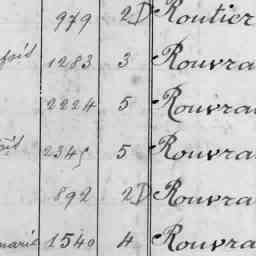 979 2D Routier
1283 3 Rouvra
2224 5 Rouvra
2345 5 Rouvra
892 2D Rouvra
marie 1540 4 Rouvra